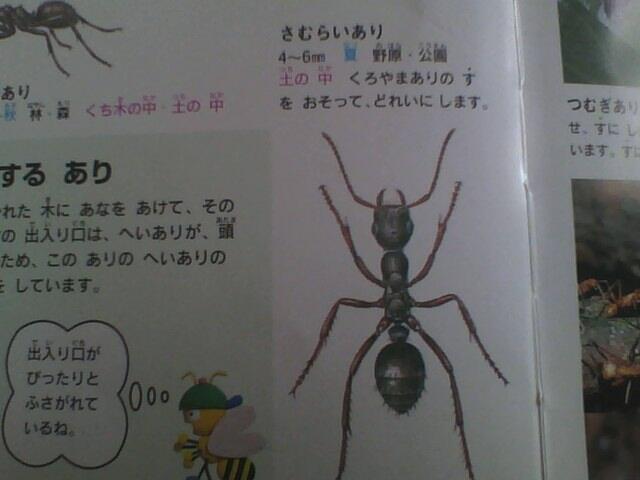 さむらいあり
4〜6㎜ 夏 野原・公園
土の 中 くろやまありの す
を おそって、どれいに します。
あり
秋 林・森 くち木の中・土の 中
する あり
れた 木に あなを あけて、その
の 出入り口は、へいありが、頭
ため、この ありの へいありの
を しています。
出入り口が
ぴったりと
ふさがれて
いるね。
つむぎあり
せ、すに し
います。すに